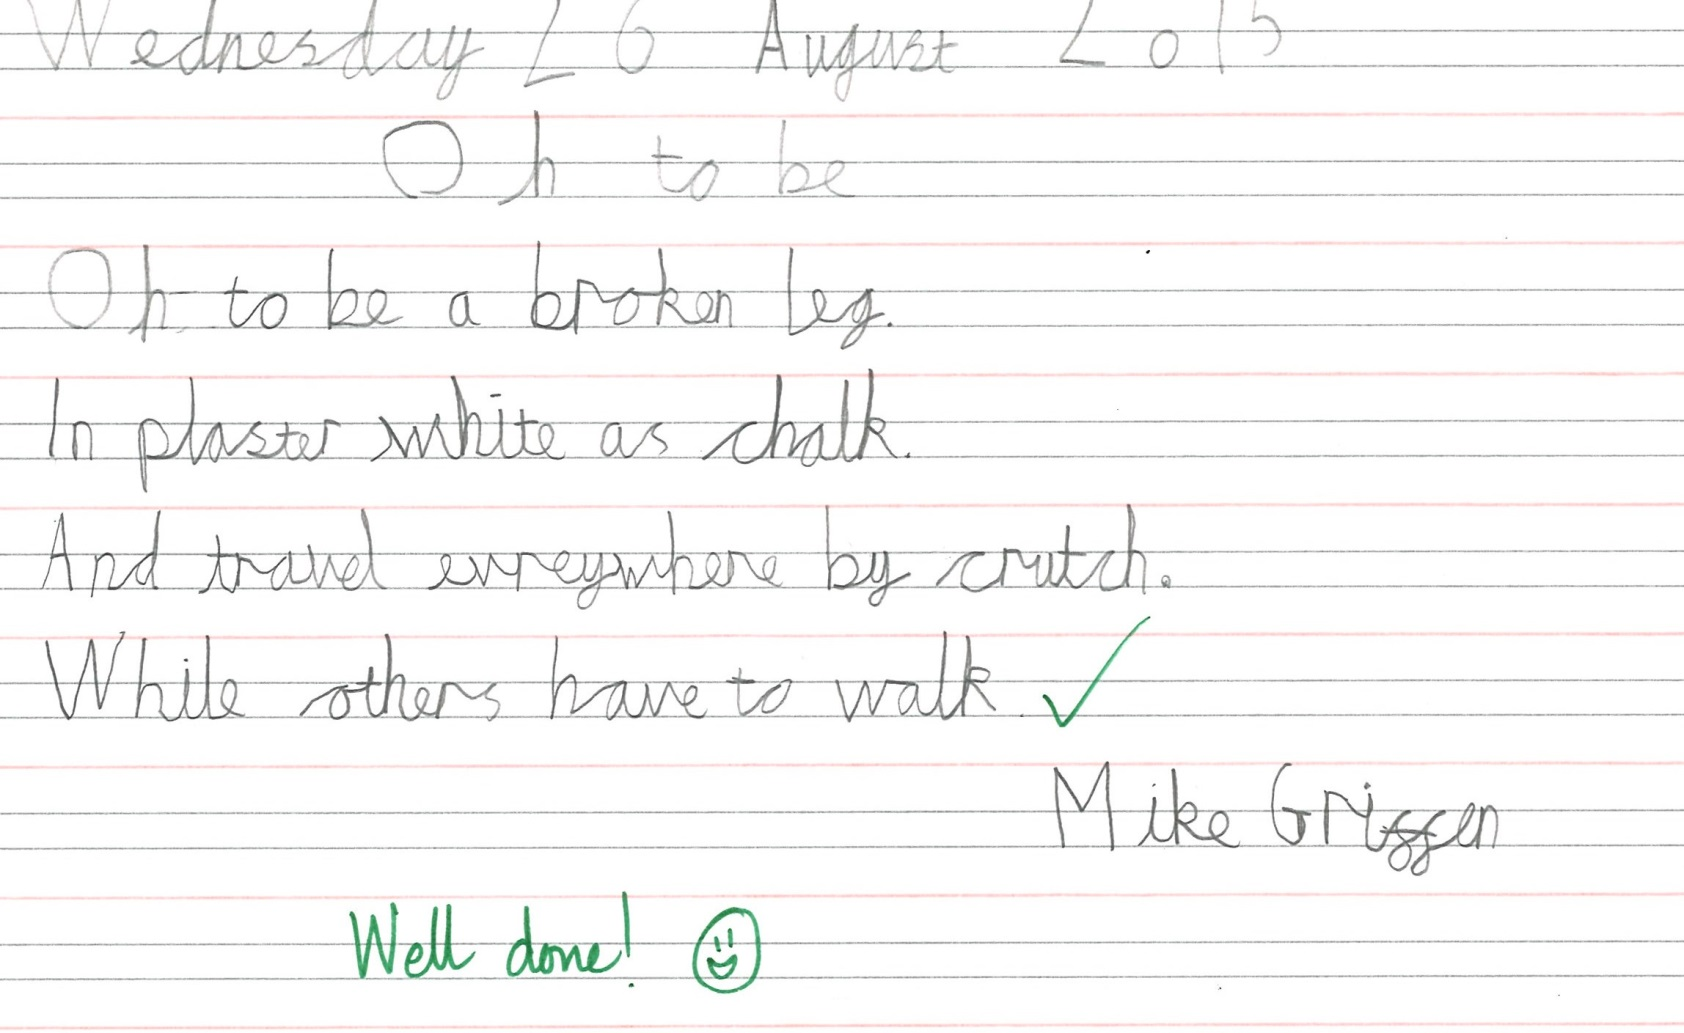 Wednesday 26 August 2015
Oh to be
Oh to be a broken leg.
In plaster white as chalk.
And travel evreywhere by crutch.
While others have to walk.
Mike Griffen
Well done!